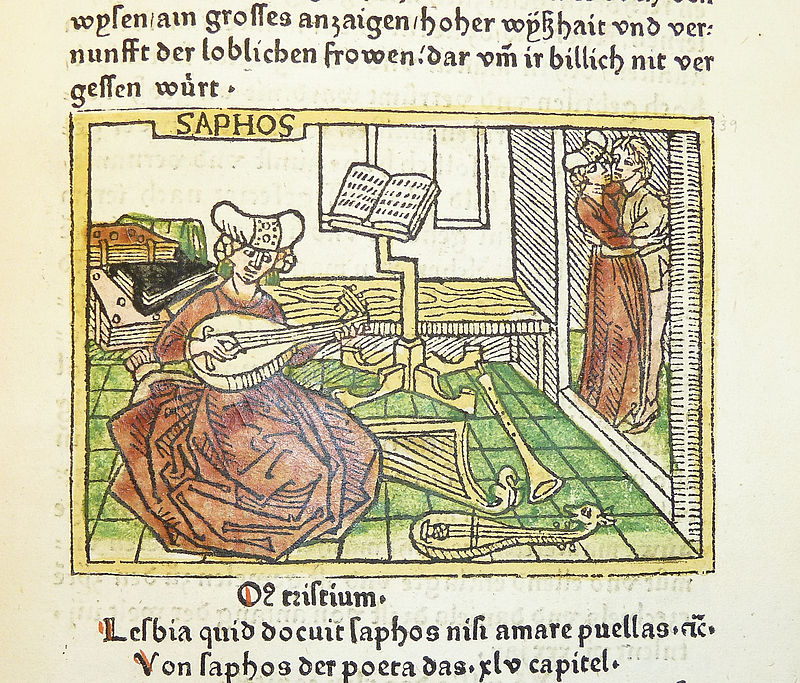 wysen/ain grosses anzaigen/hoher wyßhait vnd ver:
nunfft der loblichen frowen/dar vm̄ ir billich nit ver
gessen wůrt.
SAPHOS
Oꝛ tristium.
Lesbia quid docuit saphos nisi amare puellas. ⁊c̄.
Von saphos der poeta das. xlv capitel.